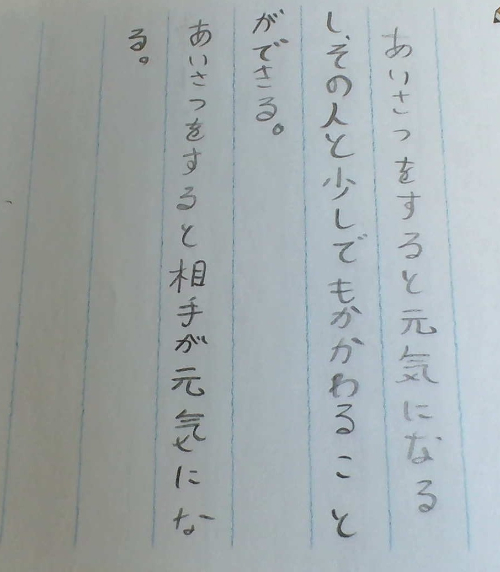 あいさつをすると元気になる
し、その人と少しでもかかわること
ができる。
あいさつをすると相手が元気にな
る。